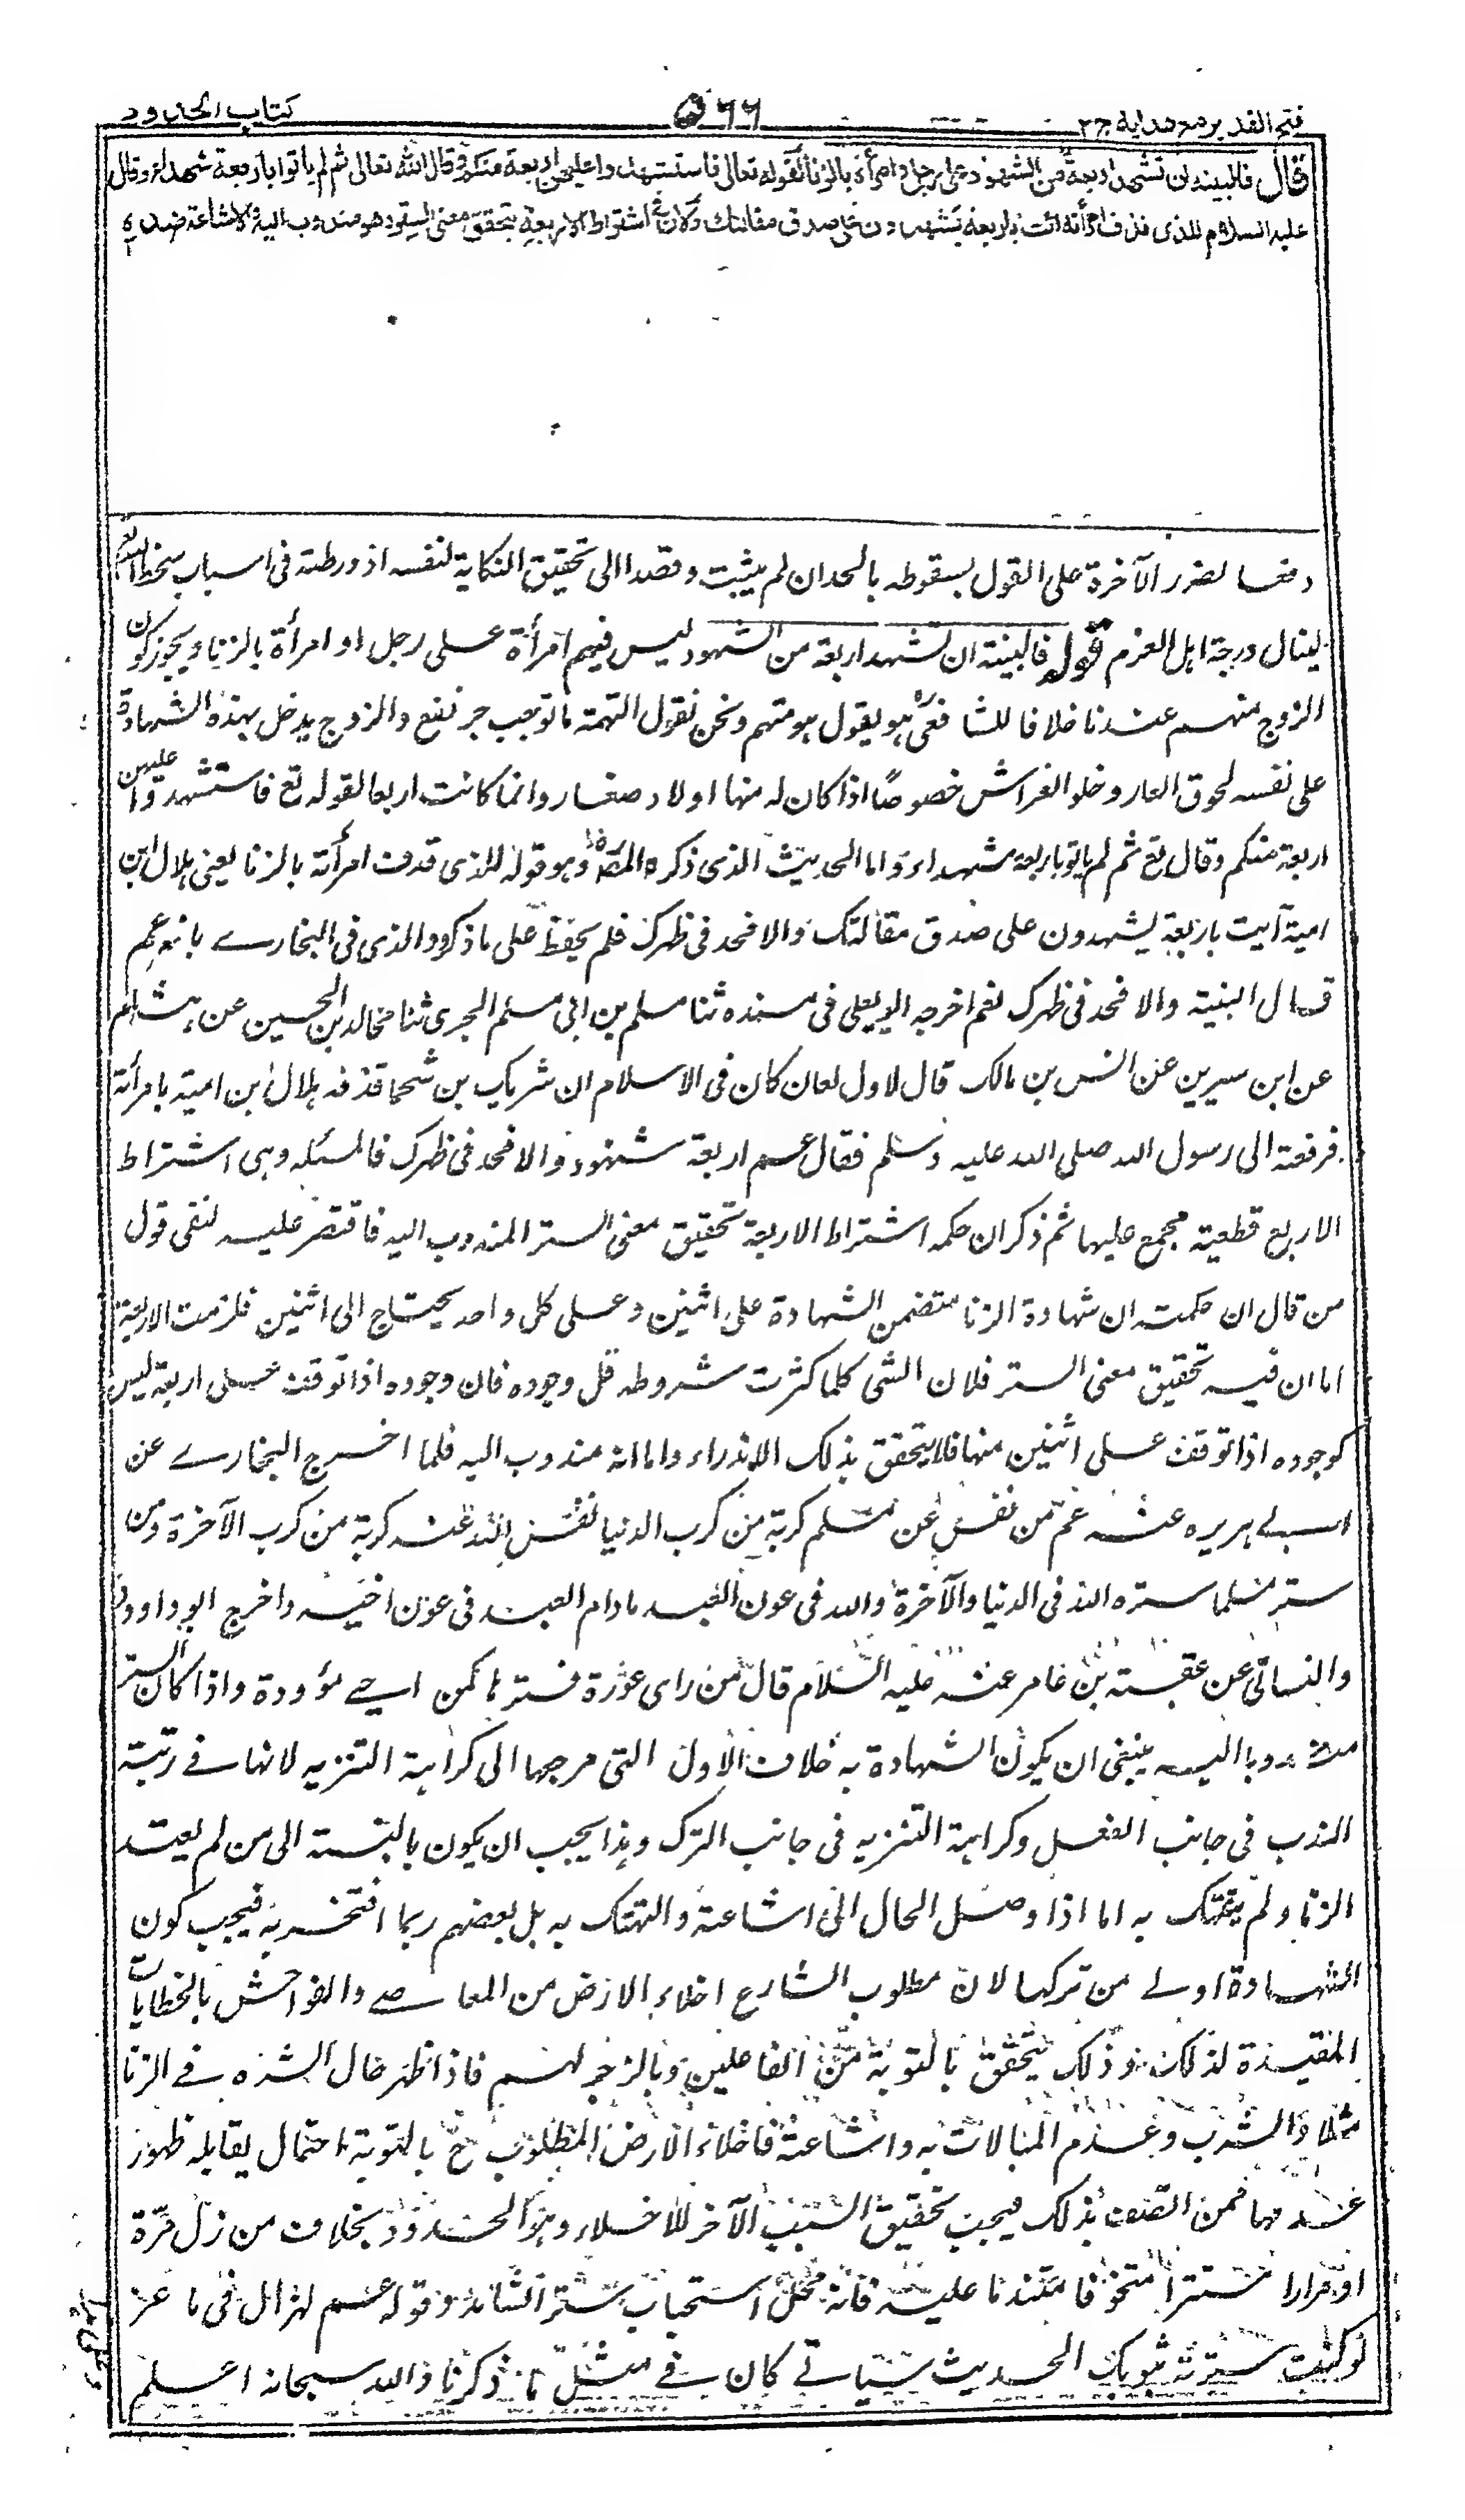 فتح القدير مع هداية ج٢
٥٦٦
كتاب الحدود
قال فالبينة ان تشهد اربعة من الشهود على رجل او امرأة بالزنا لقوله تعالى فاستشهدوا عليهن اربعة منكم وقال الله تعالى ثم لم يأتوا باربعة شهداء وقال
عليه السلام للذي قذف امرأته ائت باربعة يشهدون على صدق مقالتك ولان في اشتراط الاربعة يتحقق معنى الستر وهو مندوب اليه والاشاعة ضده
دفعا لضرر الآخرة على القول بسقوطه بالحد ان لم يثبت وقصدا الى تحقيق النكاية لنفسه اذ ورطته في اسباب سخط الله تعالى
لينال درجة اهل العزم قوله فالبينة ان تشهد اربعة من الشهود ليس فيهم امرأة على رجل او امرأة بالزنا ويجوز كون
الزوج منهم عندنا خلافا للشافعي هو يقول هو متهم ونحن نقول التهمة ما توجب جر نفع والزوج يدخل بهذه الشهادة
على نفسه لحوق العار وخلو الفراش خصوصًا اذا كان له منها اولاد صغار وانما كانت اربعا لقوله تع فاستشهدوا عليهن
اربعة منكم وقال تع ثم لم ياتوا باربعة شهداء واما الحديث الذي ذكره المص وهو قوله للذي قذف امرأته بالزنا يعني هلال ابن
امية آيت باربعة يشهدون على صدق مقالتك والا فحد في ظهرك فلم يحفظ على ما ذكر والذي في البخاري بانه عم
قال البنية والا فحد في ظهرك نعم اخرجه ابو يعلى في مسنده ثنا مسلم بن ابي مسلم الجرمى ثنا مخالد بن الحسين عن هشام
عن ابن سيرين عن انس بن مالك قال لاول لعان كان في الاسلام ان شريك بن شحما قذفه هلال ابن امية بامرأته
فرفعته الى رسول الله صلى الله عليه وسلم فقال عم اربعة شهود والا فحد في ظهرك فالمسئلة وهي اشتراط
الاربع قطعية مجمع عليها ثم ذكر ان حكمة اشتراط الاربعة تحقيق معنى الستر المندوب اليه فاقتصر عليه لنفى قول
من قال ان حكمته ان شهادة الزنا متضمن الشهادة على اثنين وعلى كل واحد يحتاج الى اثنين فلزمت الاربعة
اما ان فيه تحقيق معنى الستر فلان الشئ كلما كثرت شروطه قل وجوده فان وجوده اذا توقف على اربعة ليس
كوجوده اذا توقف على اثنين منها فلا يتحقق بذلك الاندراء واما انه مندوب اليه فلما اخرج البخاري عن
ابي هريره عنه عم من نفس عن مسلم كربة من كرب الدنيا نفس الله عنه كربة من كرب الآخرة ومن
ستر مسلما ستره الله في الدنيا والآخرة والله في عون العبد مادام العبد في عون اخيه واخرج ابو داود
والنسائي عن عقبة بن عامر عنه عليه السلام قال من راى عورة فسترها كمن احيى مؤودة واذا كان الستر
مندوبا اليه ينبغى ان يكون الشهادة به خلاف الاول التي مرجعها الى كراهة التنزيه لانها في رتبة
الندب في جانب الفعل وكراهة التنزيه في جانب الترك وهذا يجب ان يكون بالنسبة الى من لم يعتد
الزنا ولم يتهتك به اما اذا وصل الحال الى اشاعته والتهتك به بل بعضهم ربما افتخر به فيجب كون
الشهادة اولى من تركها لان مطلوب الشارع اخلاء الارض من المعاصى والفواحش بالخطابات
المفيدة لذلك وذلك يتحقق بالتوبة من الفاعلين وبالزجر لهم فاذا ظهر حال الشره في الزنا
مثلا والشرب وعدم المبالات به واشاعته فاخلاء الارض المطلوب ح بالتوبة احتمال يقابله ظهور
عدمها فمن اتصف بذلك فيجب تحقيق السبب الآخر للاخلاء وهو الحدود بخلاف من زل مرة
او مرارا مستترا متخوفا متندما عليه فانه محل استحباب ستر الشاهد وقوله عم لهزال في ماعز
لو كنت سترته بثوبك الحديث سياتى كان في مثل ما ذكرنا والله سبحانه اعلم